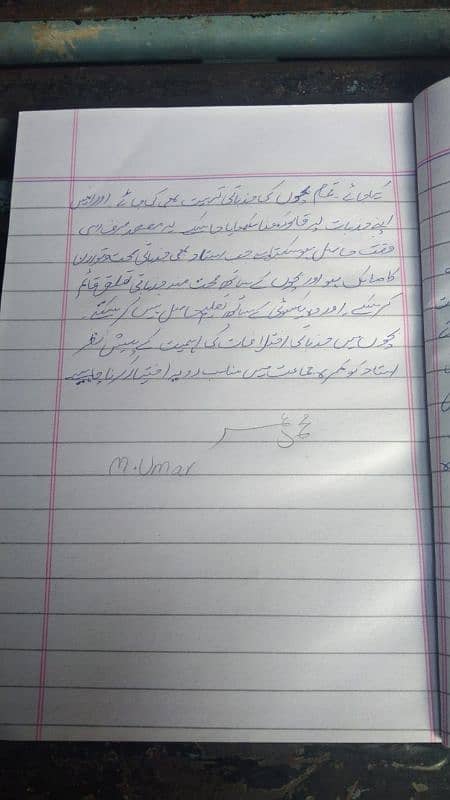 کے بجائے تمام بچوں کی جذباتی تربیت بھی کی جائے اور انہیں
اپنے جذبات پر قابو رکھنا سکھایا جا سکے۔ یہ مقصد صرف اسی
وقت حاصل ہو سکتا ہے جب استاد بھی جذباتی صحت و توازن
کا مالک ہو اور بچوں کے ساتھ صحت مند جذباتی تعلق قائم
کر سکے۔ اور وہ یکسوئی کے ساتھ تعلیم حاصل نہیں کر سکتے۔
بچوں میں جذباتی اختلافات کی اہمیت کے پیش نظر
استاد کو کمرہ جماعت میں مناسب رویہ اختیار کرنا چاہیے
محمد عمر
M.Umar